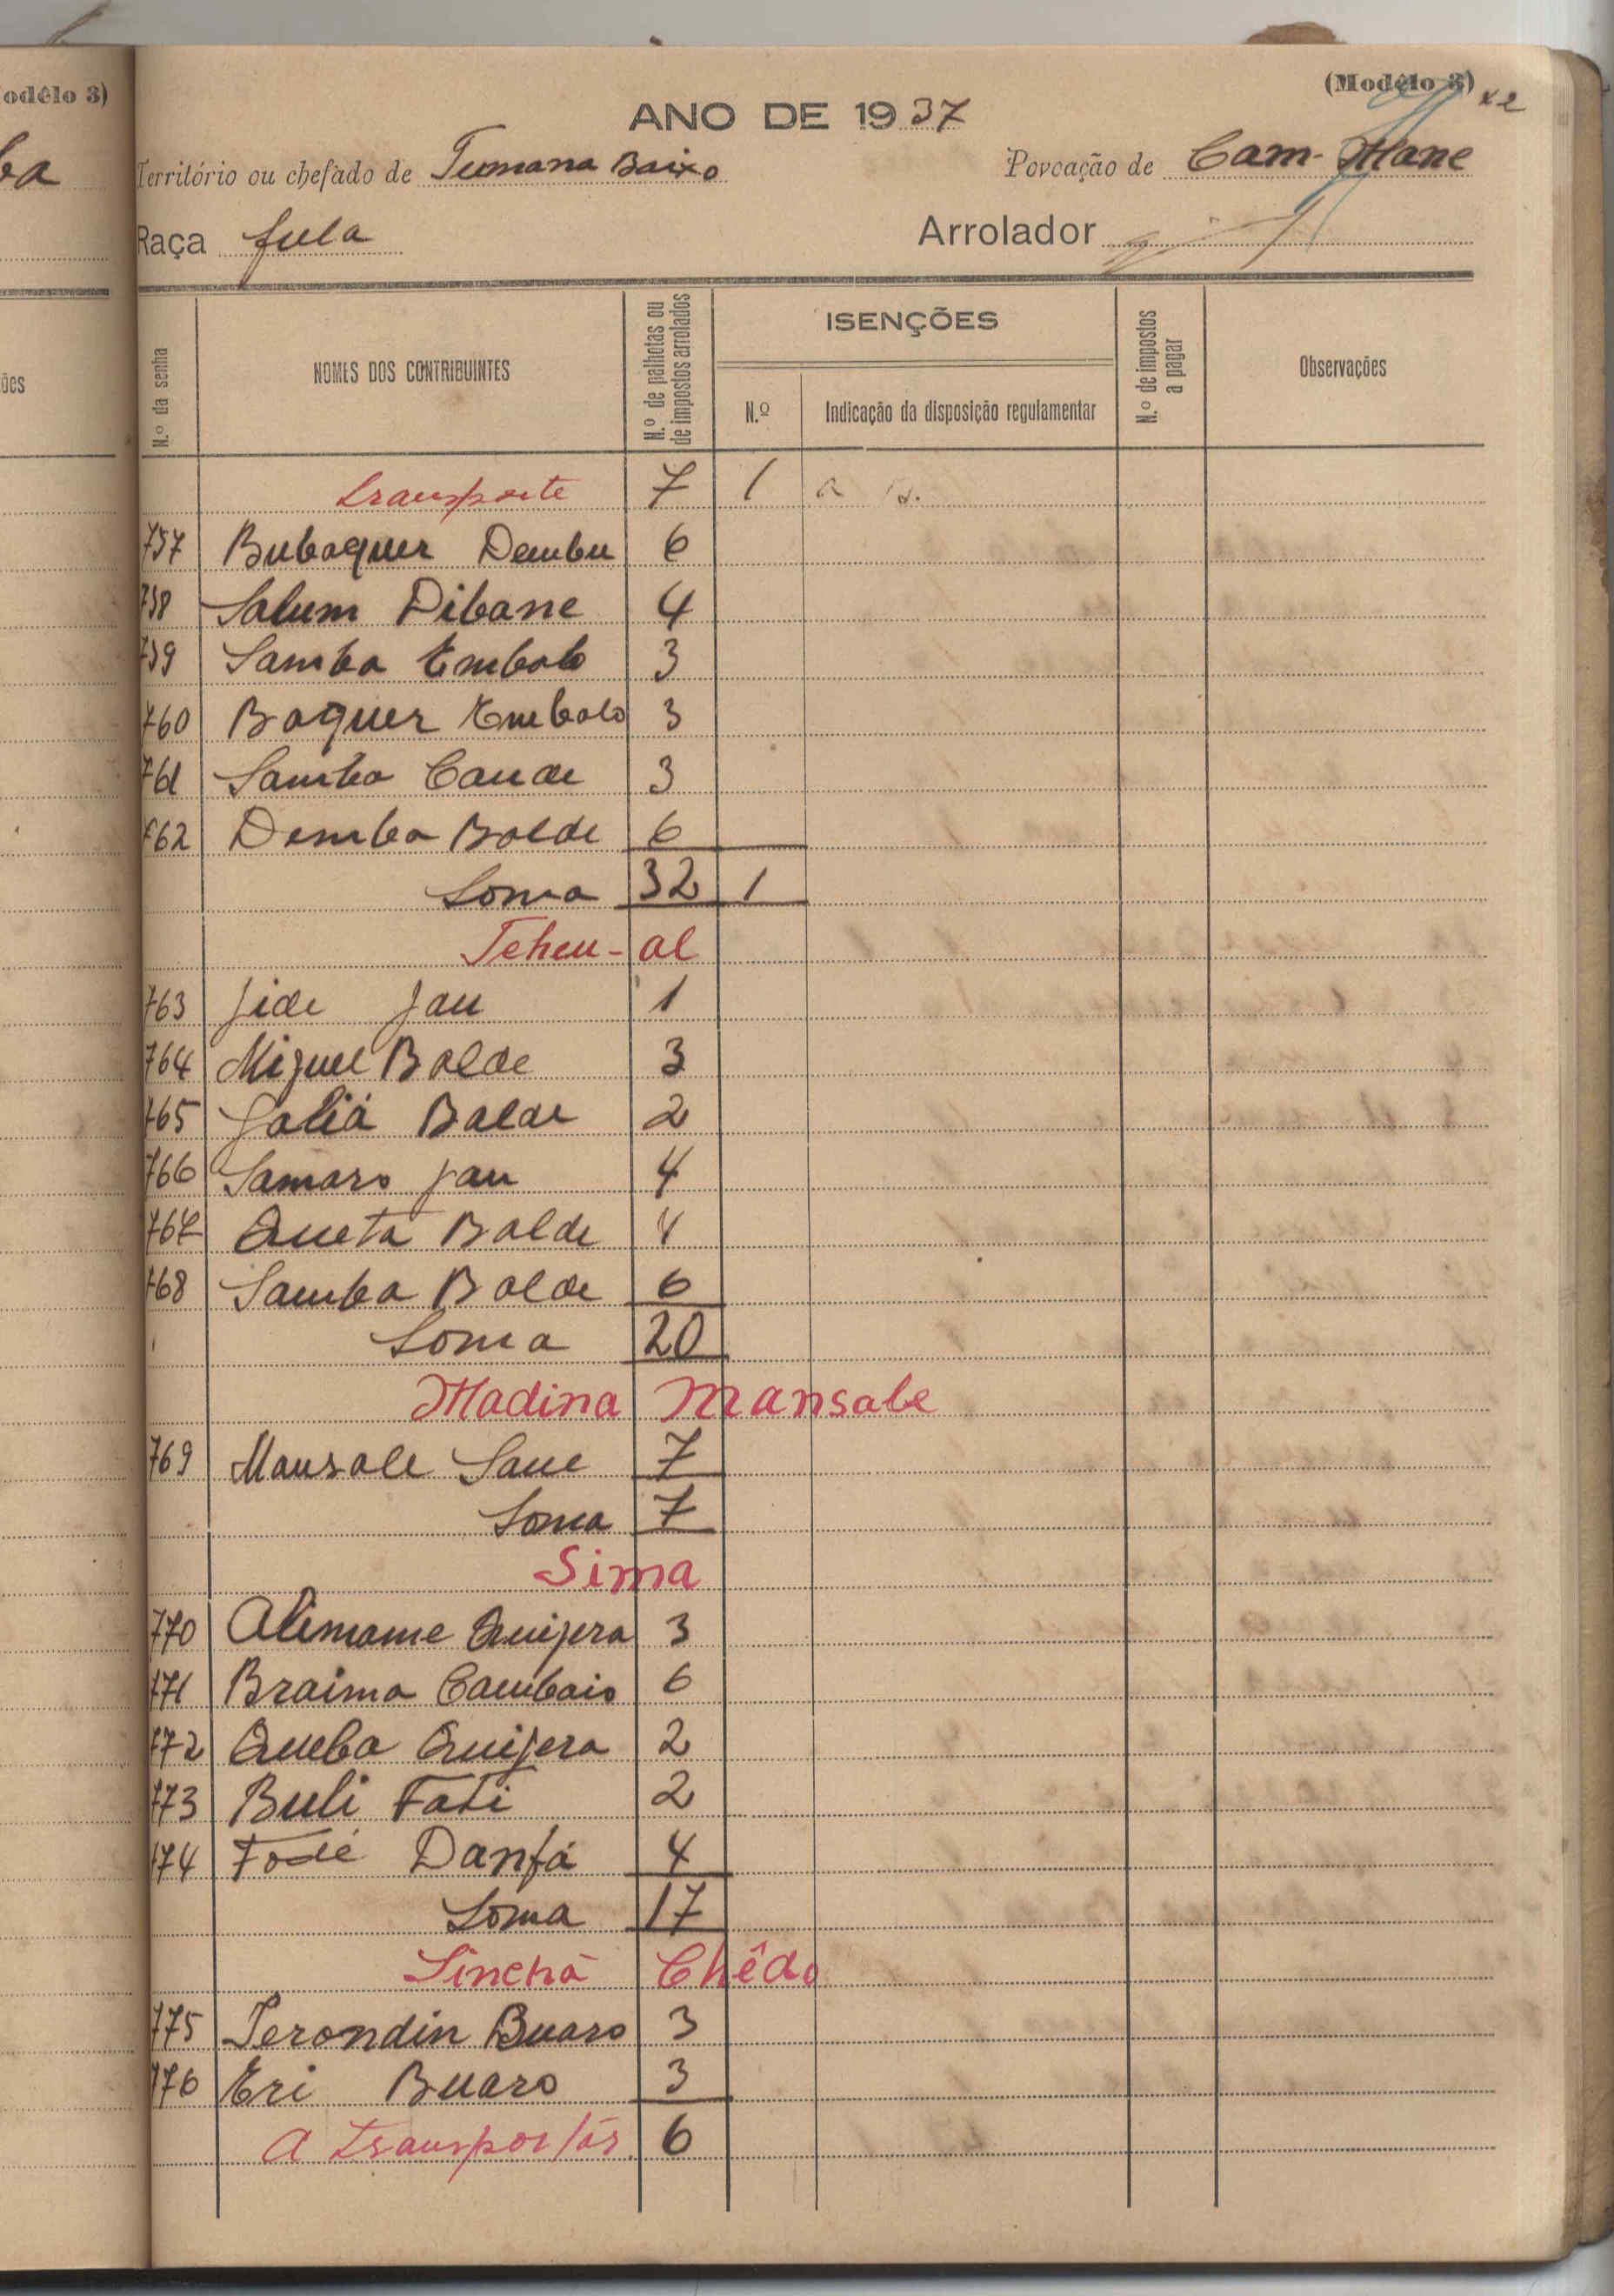 (Modêlo 3)
odêlo 3)
ANO DE 1937
ba
Território ou chefado de Tumana Baixo
Povoação de Cam-Mane
Raça fula
Arrolador
N.º da senha
NOMES DOS CONTRIBUINTES
N.º de palhotas ou de impostos arrolados
ISENÇÕES
N.º
Indicação da disposição regulamentar
N.º de impostos a pagar
Observações
ões
transporte 7 1
757 Bubaquer Dembu 6
758 Salum Dibane 4
759 Samba Embalo 3
760 Baquer Embalo 3
761 Samba Cande 3
762 Demba Balde 6
Soma 32 1
Tcheu-al
763 Jide Jau 1
764 Miguel Balde 3
765 Galiá Balde 2
766 Samaro Jau 4
767 Queta Balde 4
768 Samba Balde 6
Soma 20
Madina Mansale
769 Mansale Sane 7
Soma 7
Sima
770 Alimame Quijera 3
771 Braima Cambaio 6
772 Queba Quijera 2
773 Buli Fati 2
774 Fodé Danfá 4
Soma 17
Sinchã Chêdo
775 Serondin Buaro 3
776 Eri Buaro 3
A transportar 6